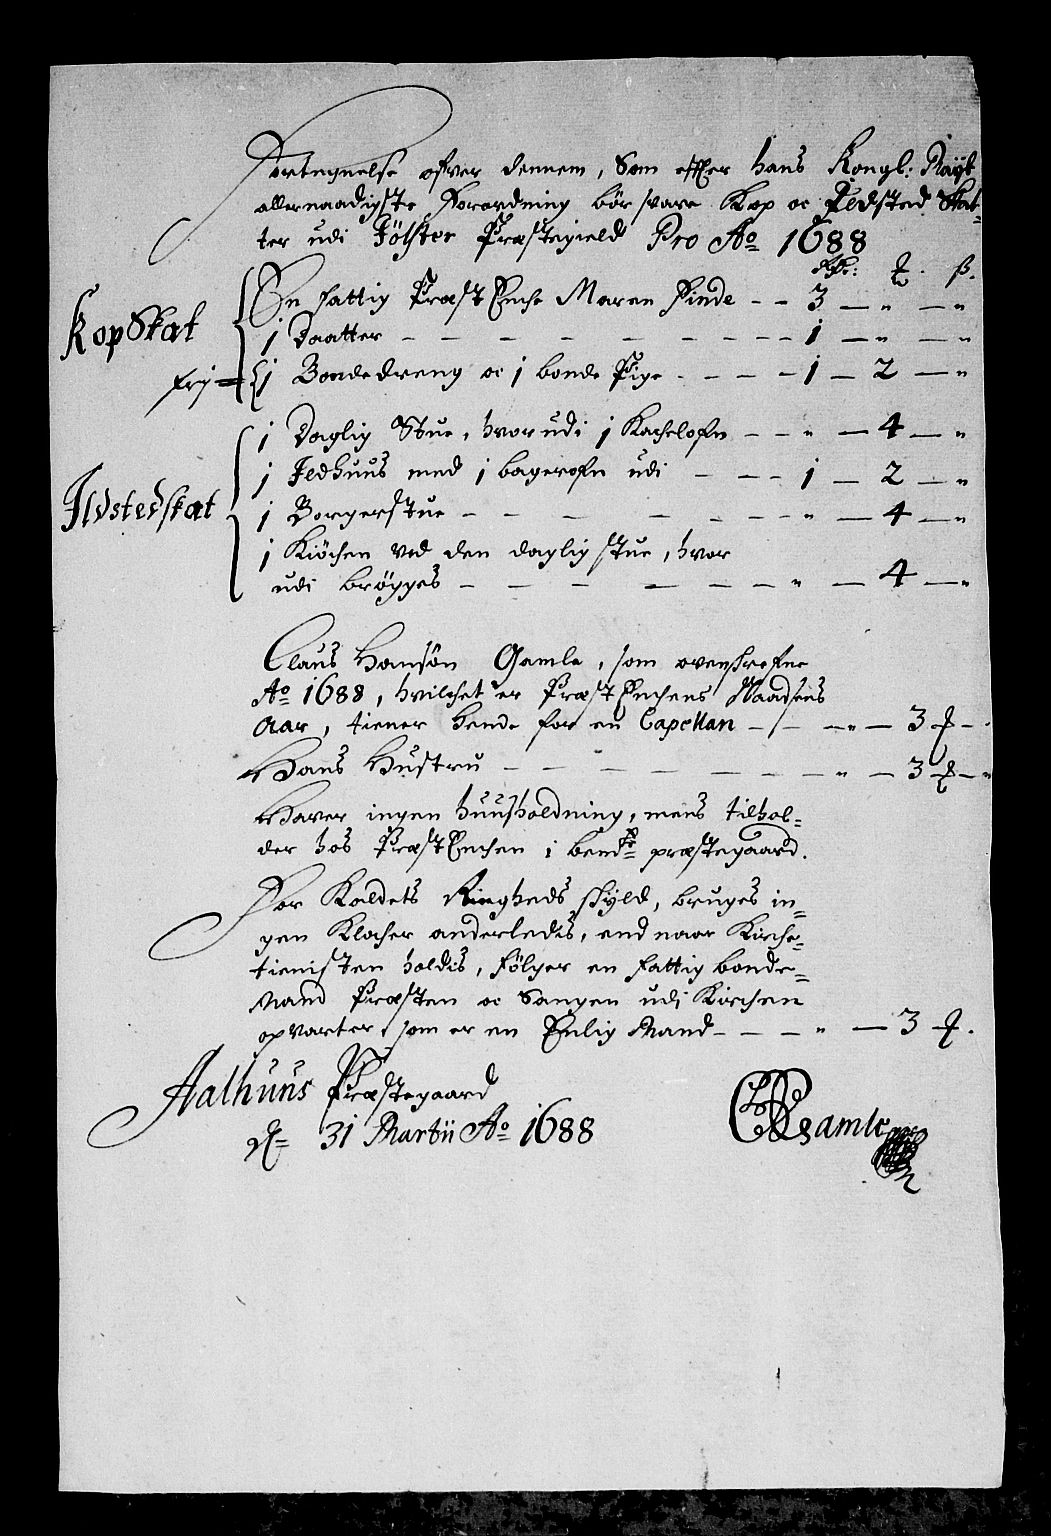 Fortegnelse ofver dennem, Som effter hans Kongl: Mayt
allernaadigste Forordning bör svare Kop oc Ildsted Skat-
ter udi Fölster Præstegield Pro Ao 1688
Rdr: ß.
KopSkat
En fattig Præst Enche Maren Finde -- 3 — " — "
j Daatter - - - - - - - 1 — " — "
fri = j Bondedreng oc j bonde Pige - - - - 1 — 2 — "
Ildstedskat
j Daglig Stue, hvorudi j Kachelofn - - " — 4 — "
j Ildhuus med j bagerofn udi - - - 1 — 2 — "
j Borgerstue - - - - - - - " — 4 — "
j Kiöchen ved den daglig stue, hvor
udi brögges - - - - - - - " — 4 — "
Claus Hansön Gamle, som ovenskrefne
Ao 1688, hvilchet er Præst Enchens Naadsens
Aar, tiener hende for en Capellan - - - " — 3
Hans Hustru - - - - - - - - " — 3 — "
Haver ingen huusholdning, mens tilhol-
der hos Præst Enchen i bemte præstegaard.
For Kaldets Ringheds skyld, bruges in-
gen Klocher anderledis, end naar Kirche-
tienisten holdis, fölger en fattig bonde-
Mand Præsten oc Sangen udi Kirchen
opvarter, som er en Enlig Mand - - - " — 3
Aalhuus Præstegaard
d. 31 Martii Ao 1688
CHGamle